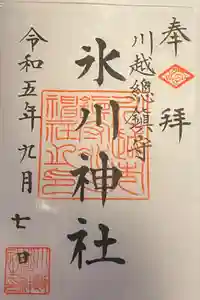 奉拝
川越總鎮守
氷川神社
令和五年九月七日